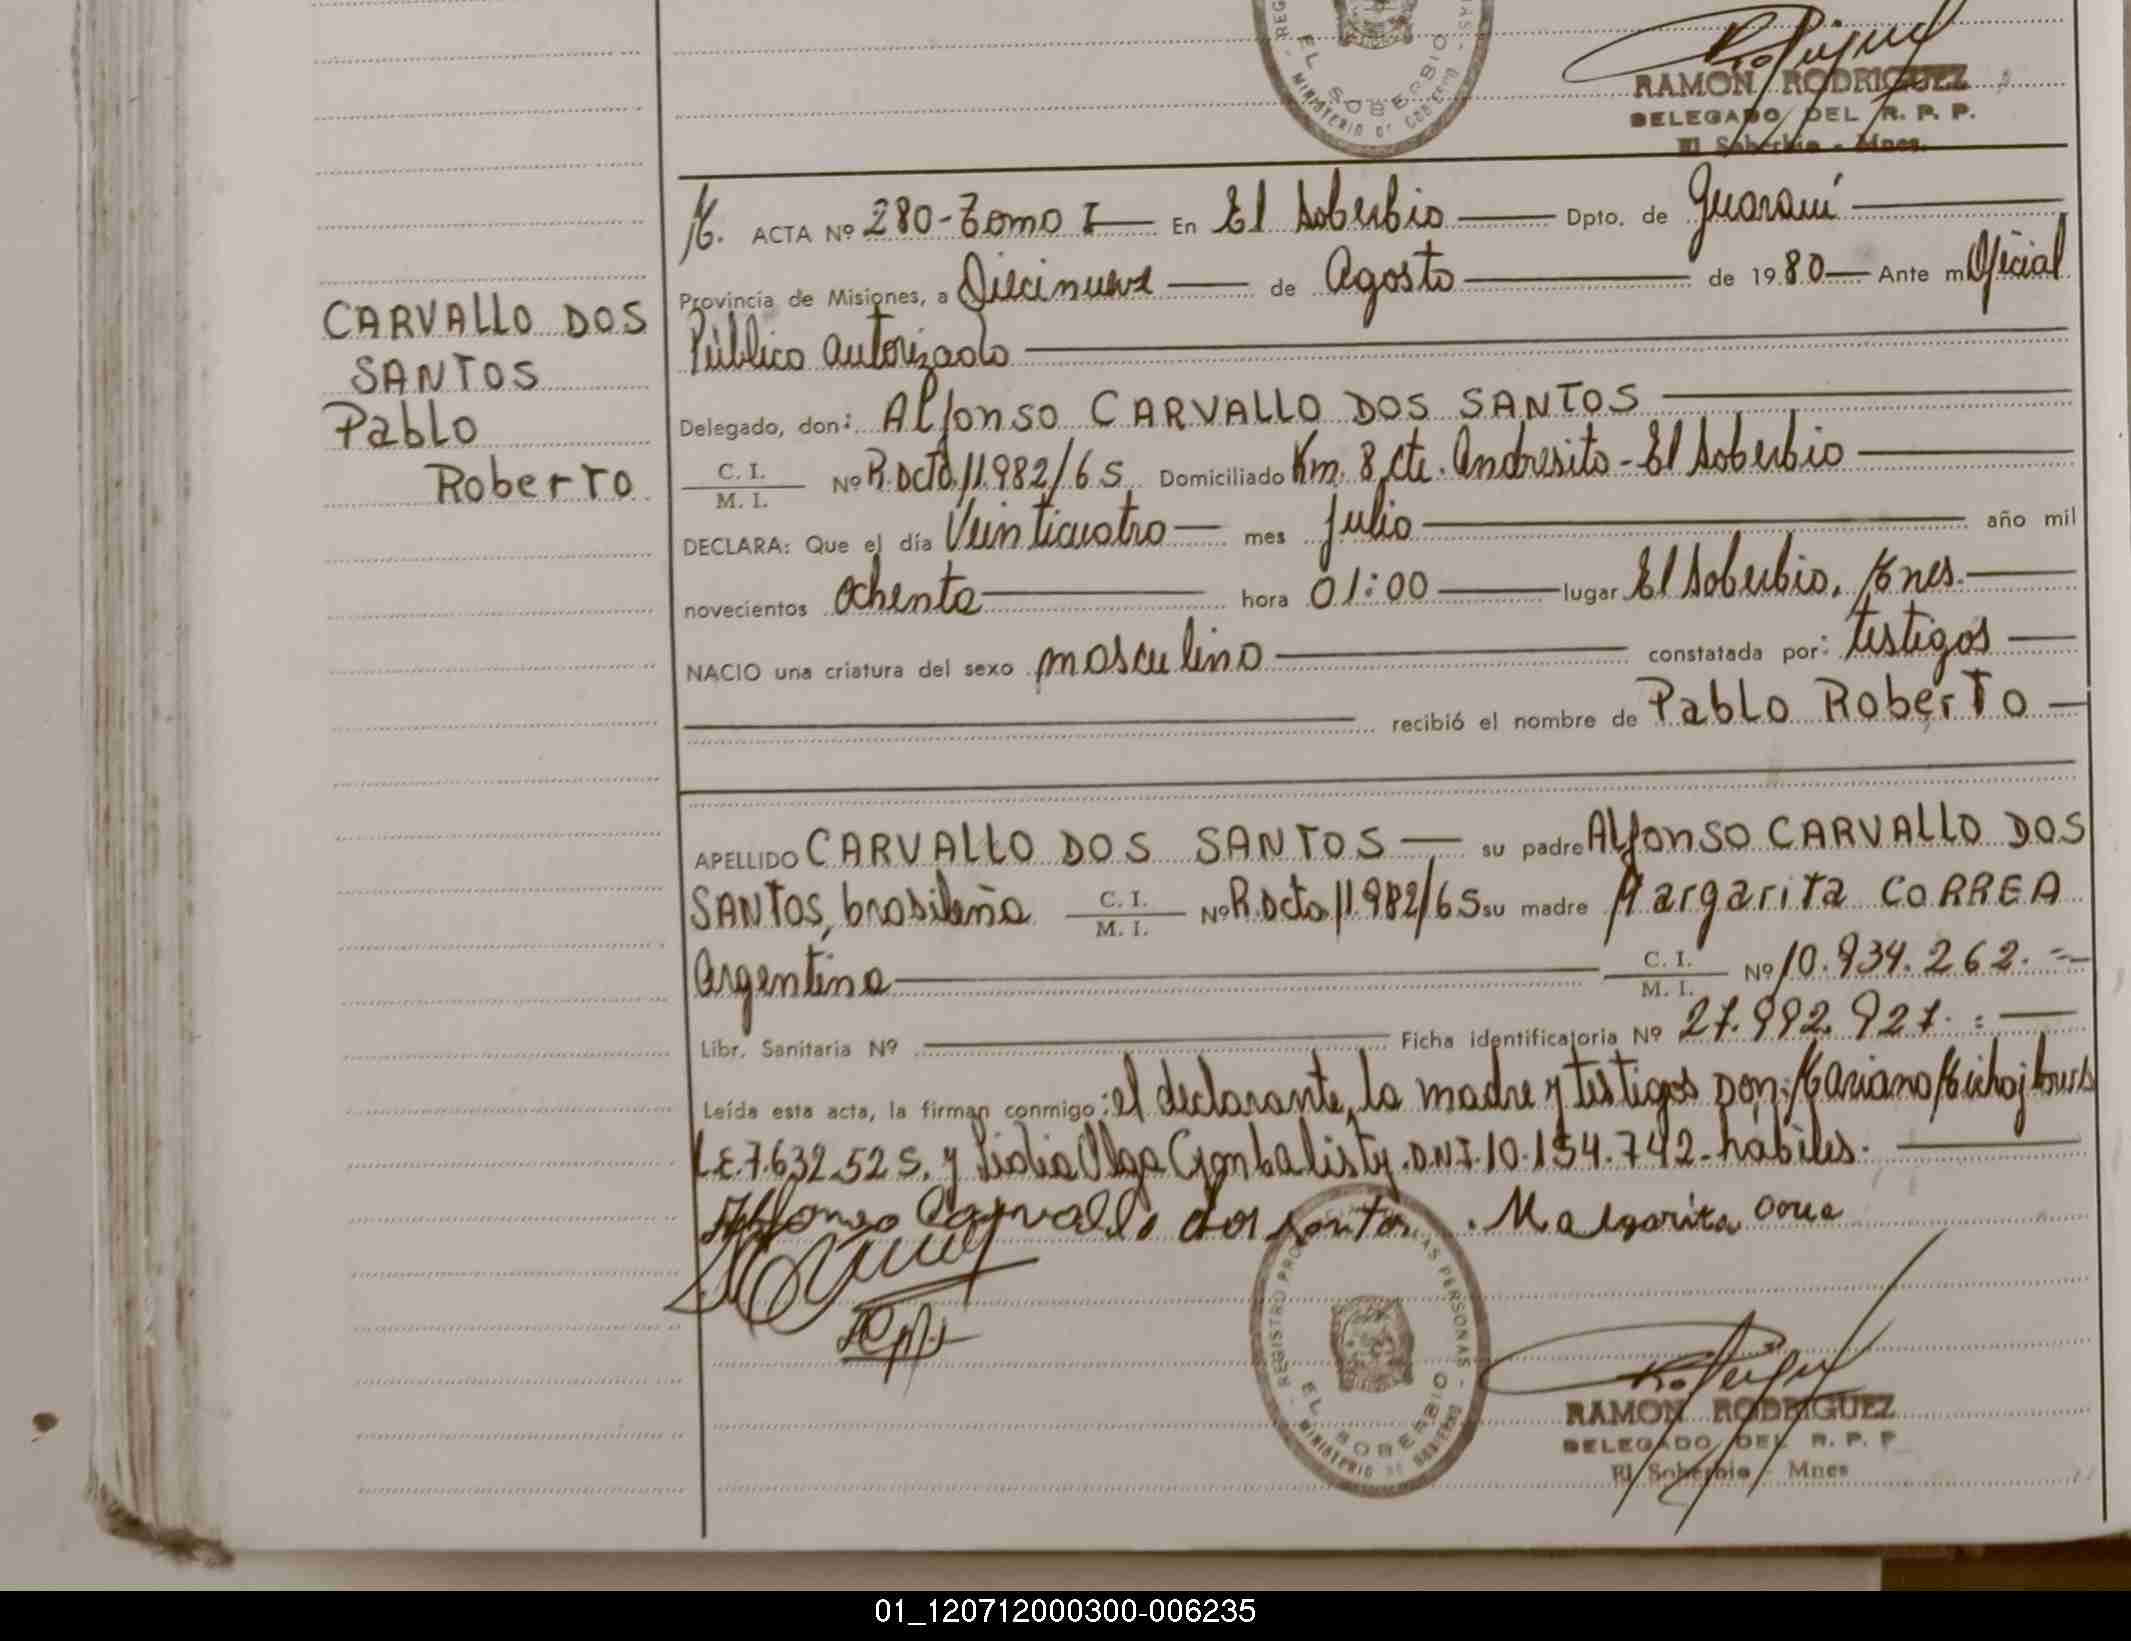 EL SOBERBIO
MINISTERIO DE GOBIERNO
RAMON RODRIGUEZ
DELEGADO DEL R. P. P.
El Soberbio - Mnes.
M. ACTA Nº 280-Tomo I En El Soberbio Dpto. de Guaraní
Provincia de Misiones, a Diecinueve de Agosto de 1980 Ante mí Oficial
Público autorizado
CARVALLO DOS
SANTOS
Pablo
Roberto
Delegado, don: Alfonso CARVALLO DOS SANTOS
C. I.
M. I. Nº R.Dcto.11.982/65 Domiciliado Km. 8 Cte. Andresito - El Soberbio
DECLARA: Que el día Veinticuatro mes Julio año mil
novecientos Ochenta hora 01:00 lugar El Soberbio, Mnes.
NACIO una criatura del sexo masculino constatada por: testigos
recibió el nombre de Pablo Roberto
APELLIDO CARVALLO DOS SANTOS su padre Alfonso CARVALLO DOS
SANTOS, brasileña C. I. M. I. Nº R.Dcto 11.982/65 su madre Margarita CORREA
Argentina C. I. M. I. Nº 10.934.262.
Libr. Sanitaria Nº Ficha identificatoria Nº 27.992.927.
Leída esta acta, la firman conmigo: el declarante, la madre y testigos Don: Mariano
L.E.7.632.525. y Lidia Olga DNI.10.154.742 hábiles.
Alfonso Carvallo dos santos . Malgarita
REGISTRO PERSONAS
EL SOBERBIO
MINISTERIO DE GOBIERNO
RAMON RODRIGUEZ
DELEGADO DEL R. P. P.
El Soberbio - Mnes
01_120712000300-006235